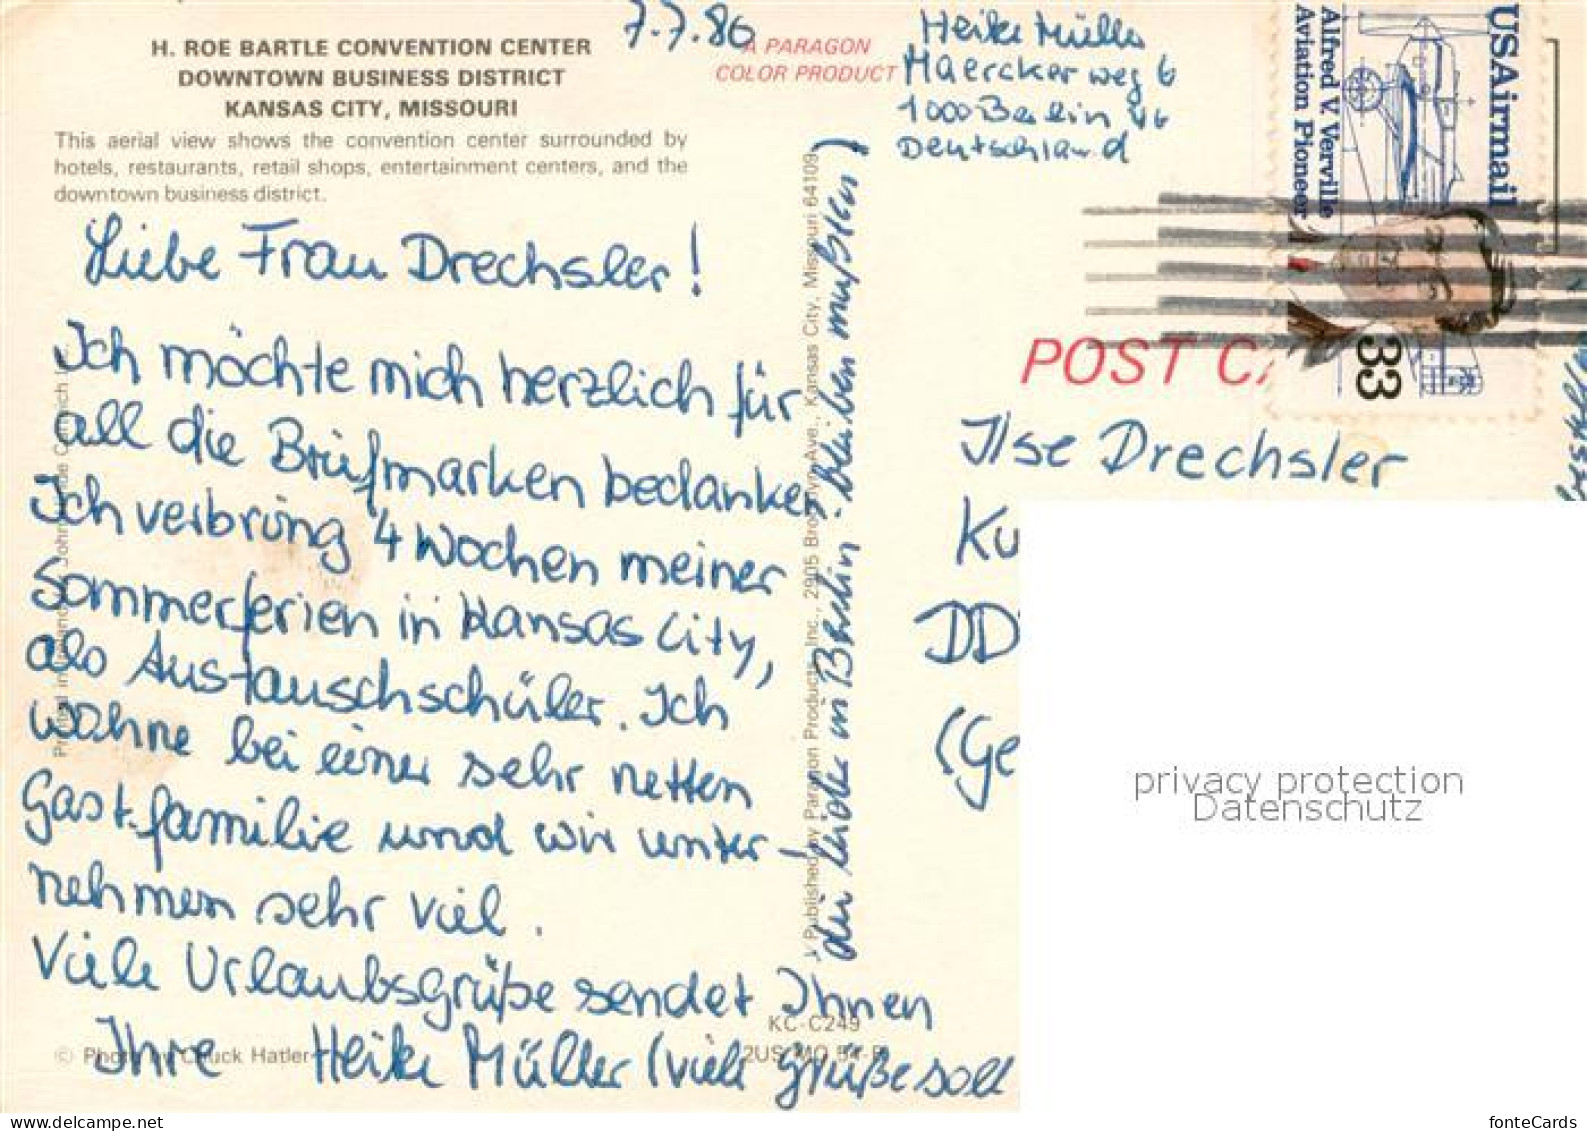 H. ROE BARTLE CONVENTION CENTER
DOWNTOWN BUSINESS DISTRICT
KANSAS CITY, MISSOURI
This aerial view shows the convention center surrounded by
hotels, restaurants, retail shops, entertainment centers, and the
downtown business district.
7.7.86
A PARAGON
COLOR PRODUCT
Heike Müller
Maerckerweg 6
1000 Berlin 46
Deutschland
USAirmail
Alfred V. Verville
Aviation Pioneer
33
POST CA
Liebe Frau Drechsler!
Ich möchte mich herzlich für
all die Briefmarken bedanken.
Ich verbring 4 Wochen meiner
Sommerferien in Kansas City,
als Austauschschüler. Ich
wohne bei einer sehr netten
Gastfamilie und wir unter-
nehmen sehr viel.
Viele Urlaubsgrüße sendet Ihnen
Ihre Heike Müller (viele Grüße soll
die leider in Berlin bleiben mußten)
Published by Paragon Products, Inc., 2905 Ave., Kansas City, Missouri 64109
Ilse Drechsler
Ku
DD
(Ge
© Photo by Chuck Hatler
KC-C249
privacy protection
Datenschutz
fonteCards